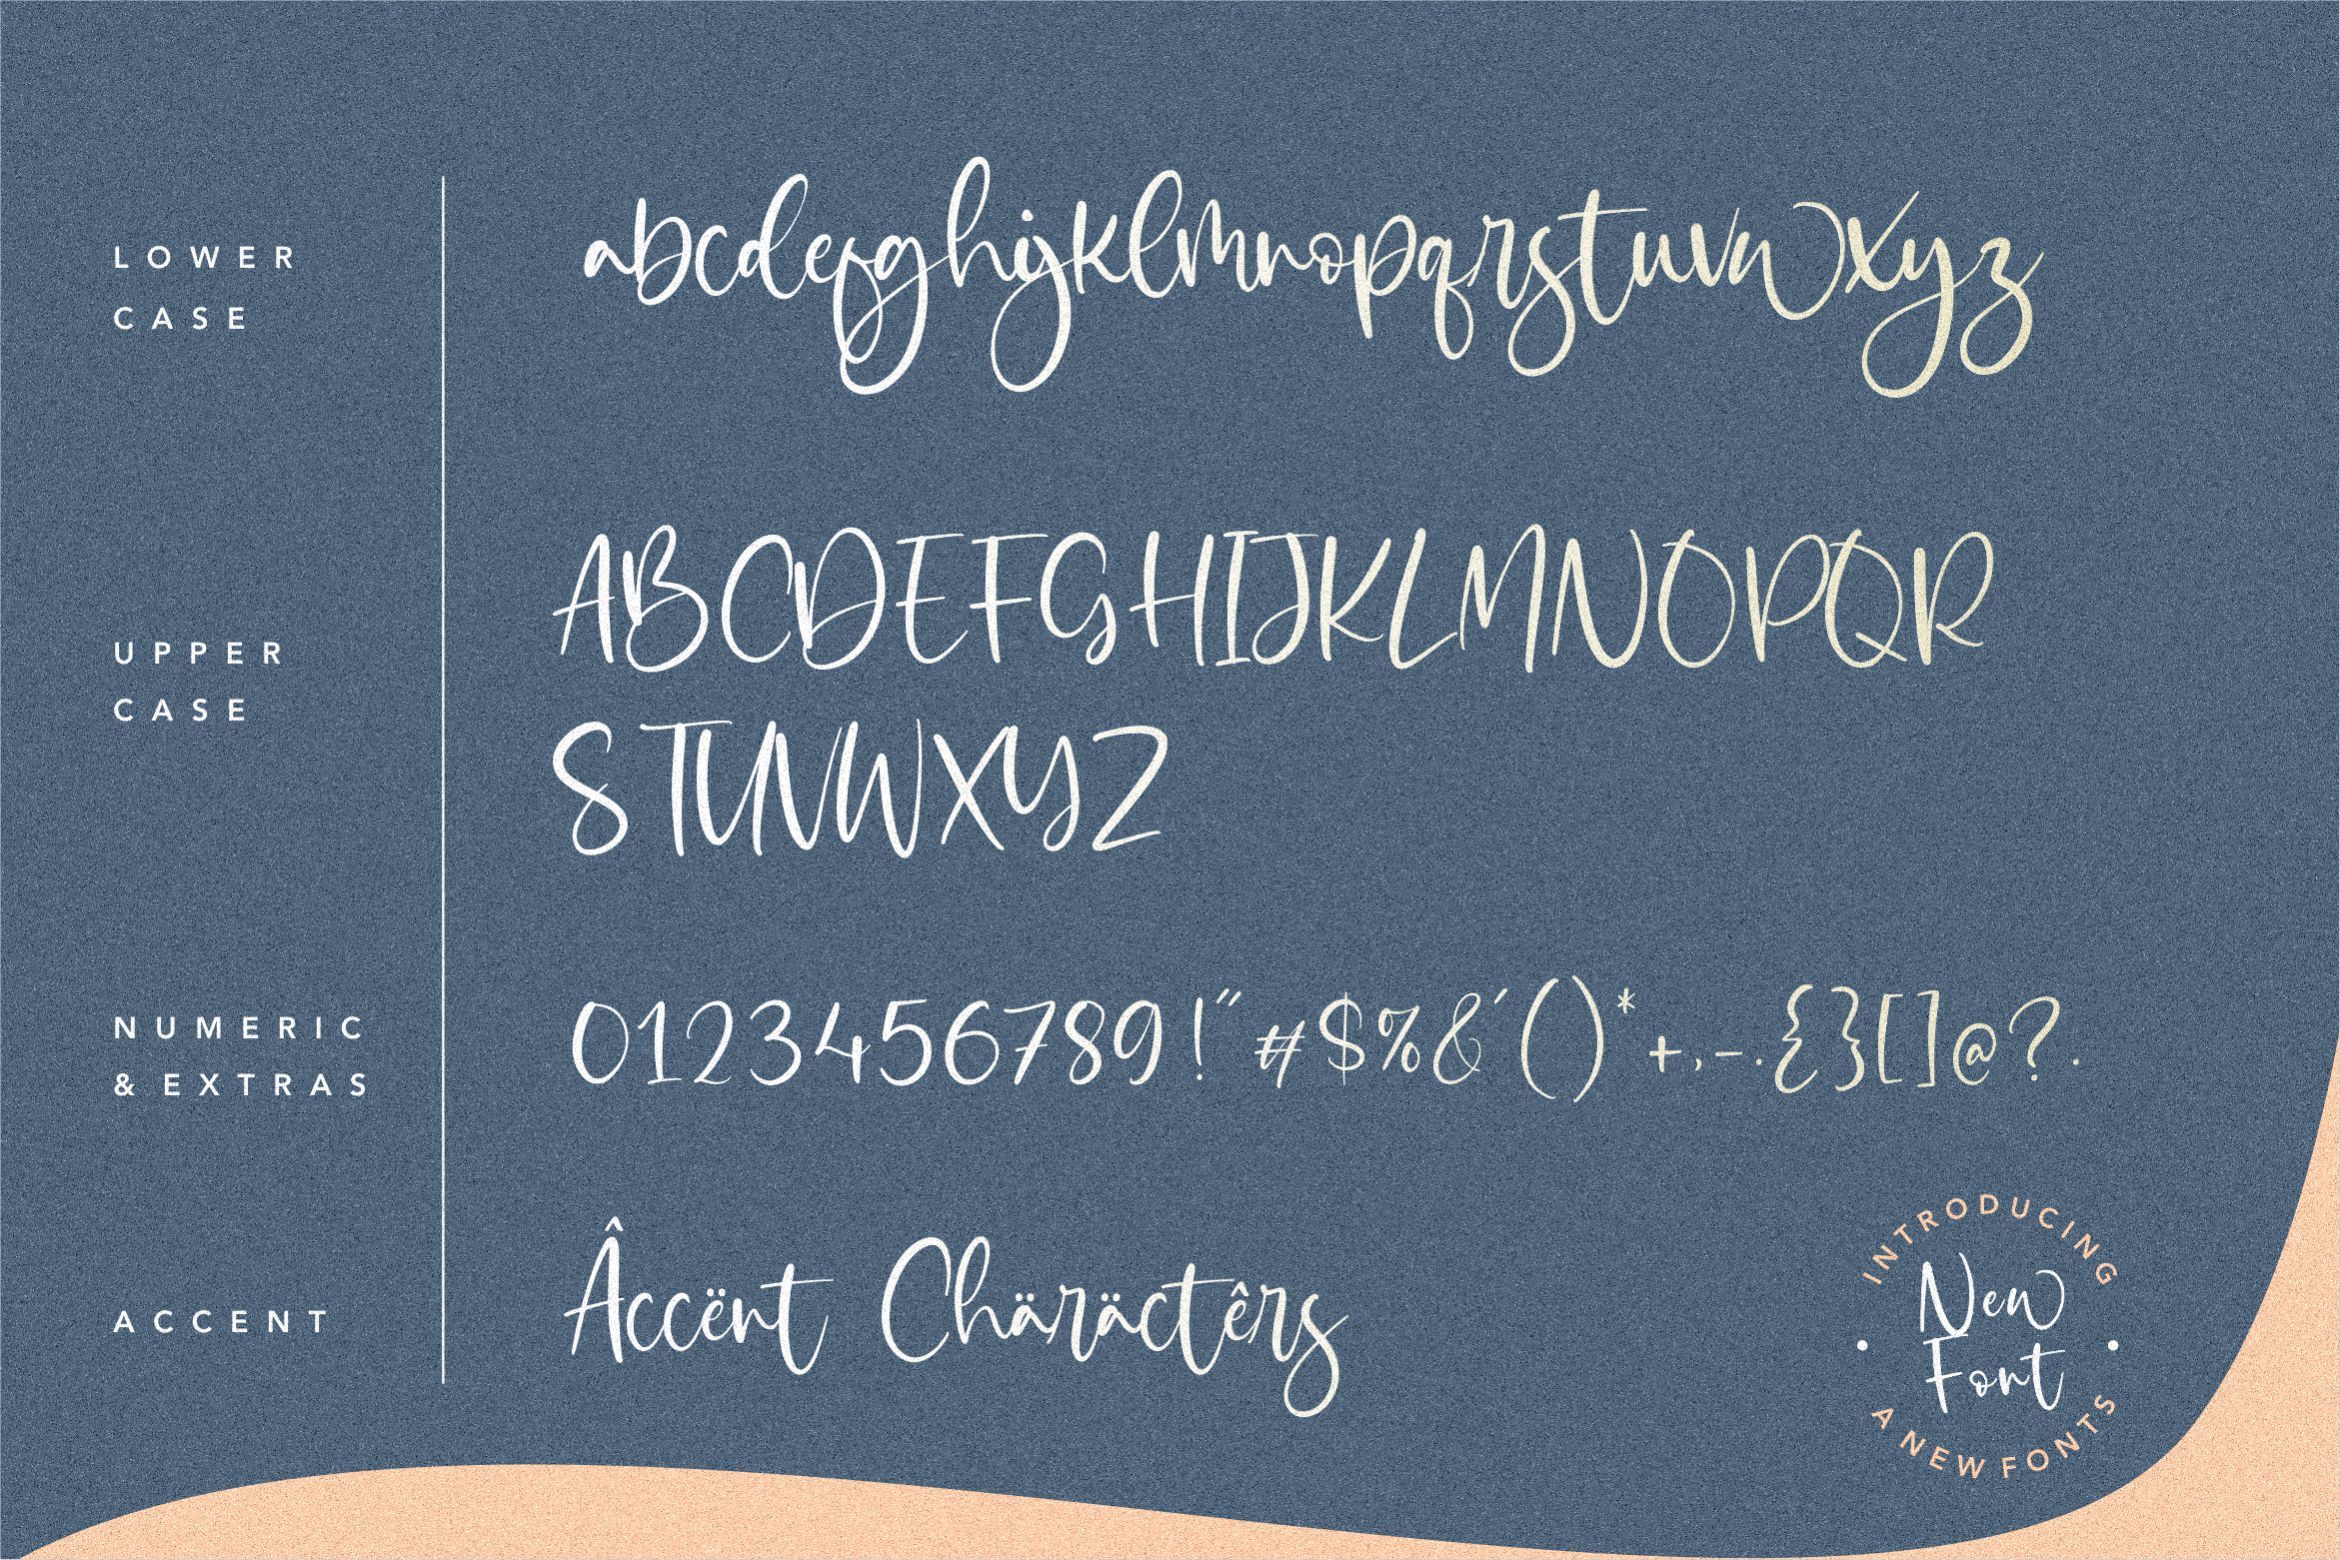 LOWER
CASE
abcdefghijklmnopqrstuvwxyz
UPPER
CASE
ABCDEFGHIJKLMNOPQR
STUVWXYZ
NUMERIC
& EXTRAS
0123456789!"#$%&'()*+,-.{}[]@?.
ACCENT
Âccënt Chäräctêrs
INTRODUCING
New
Font
A NEW FONTS